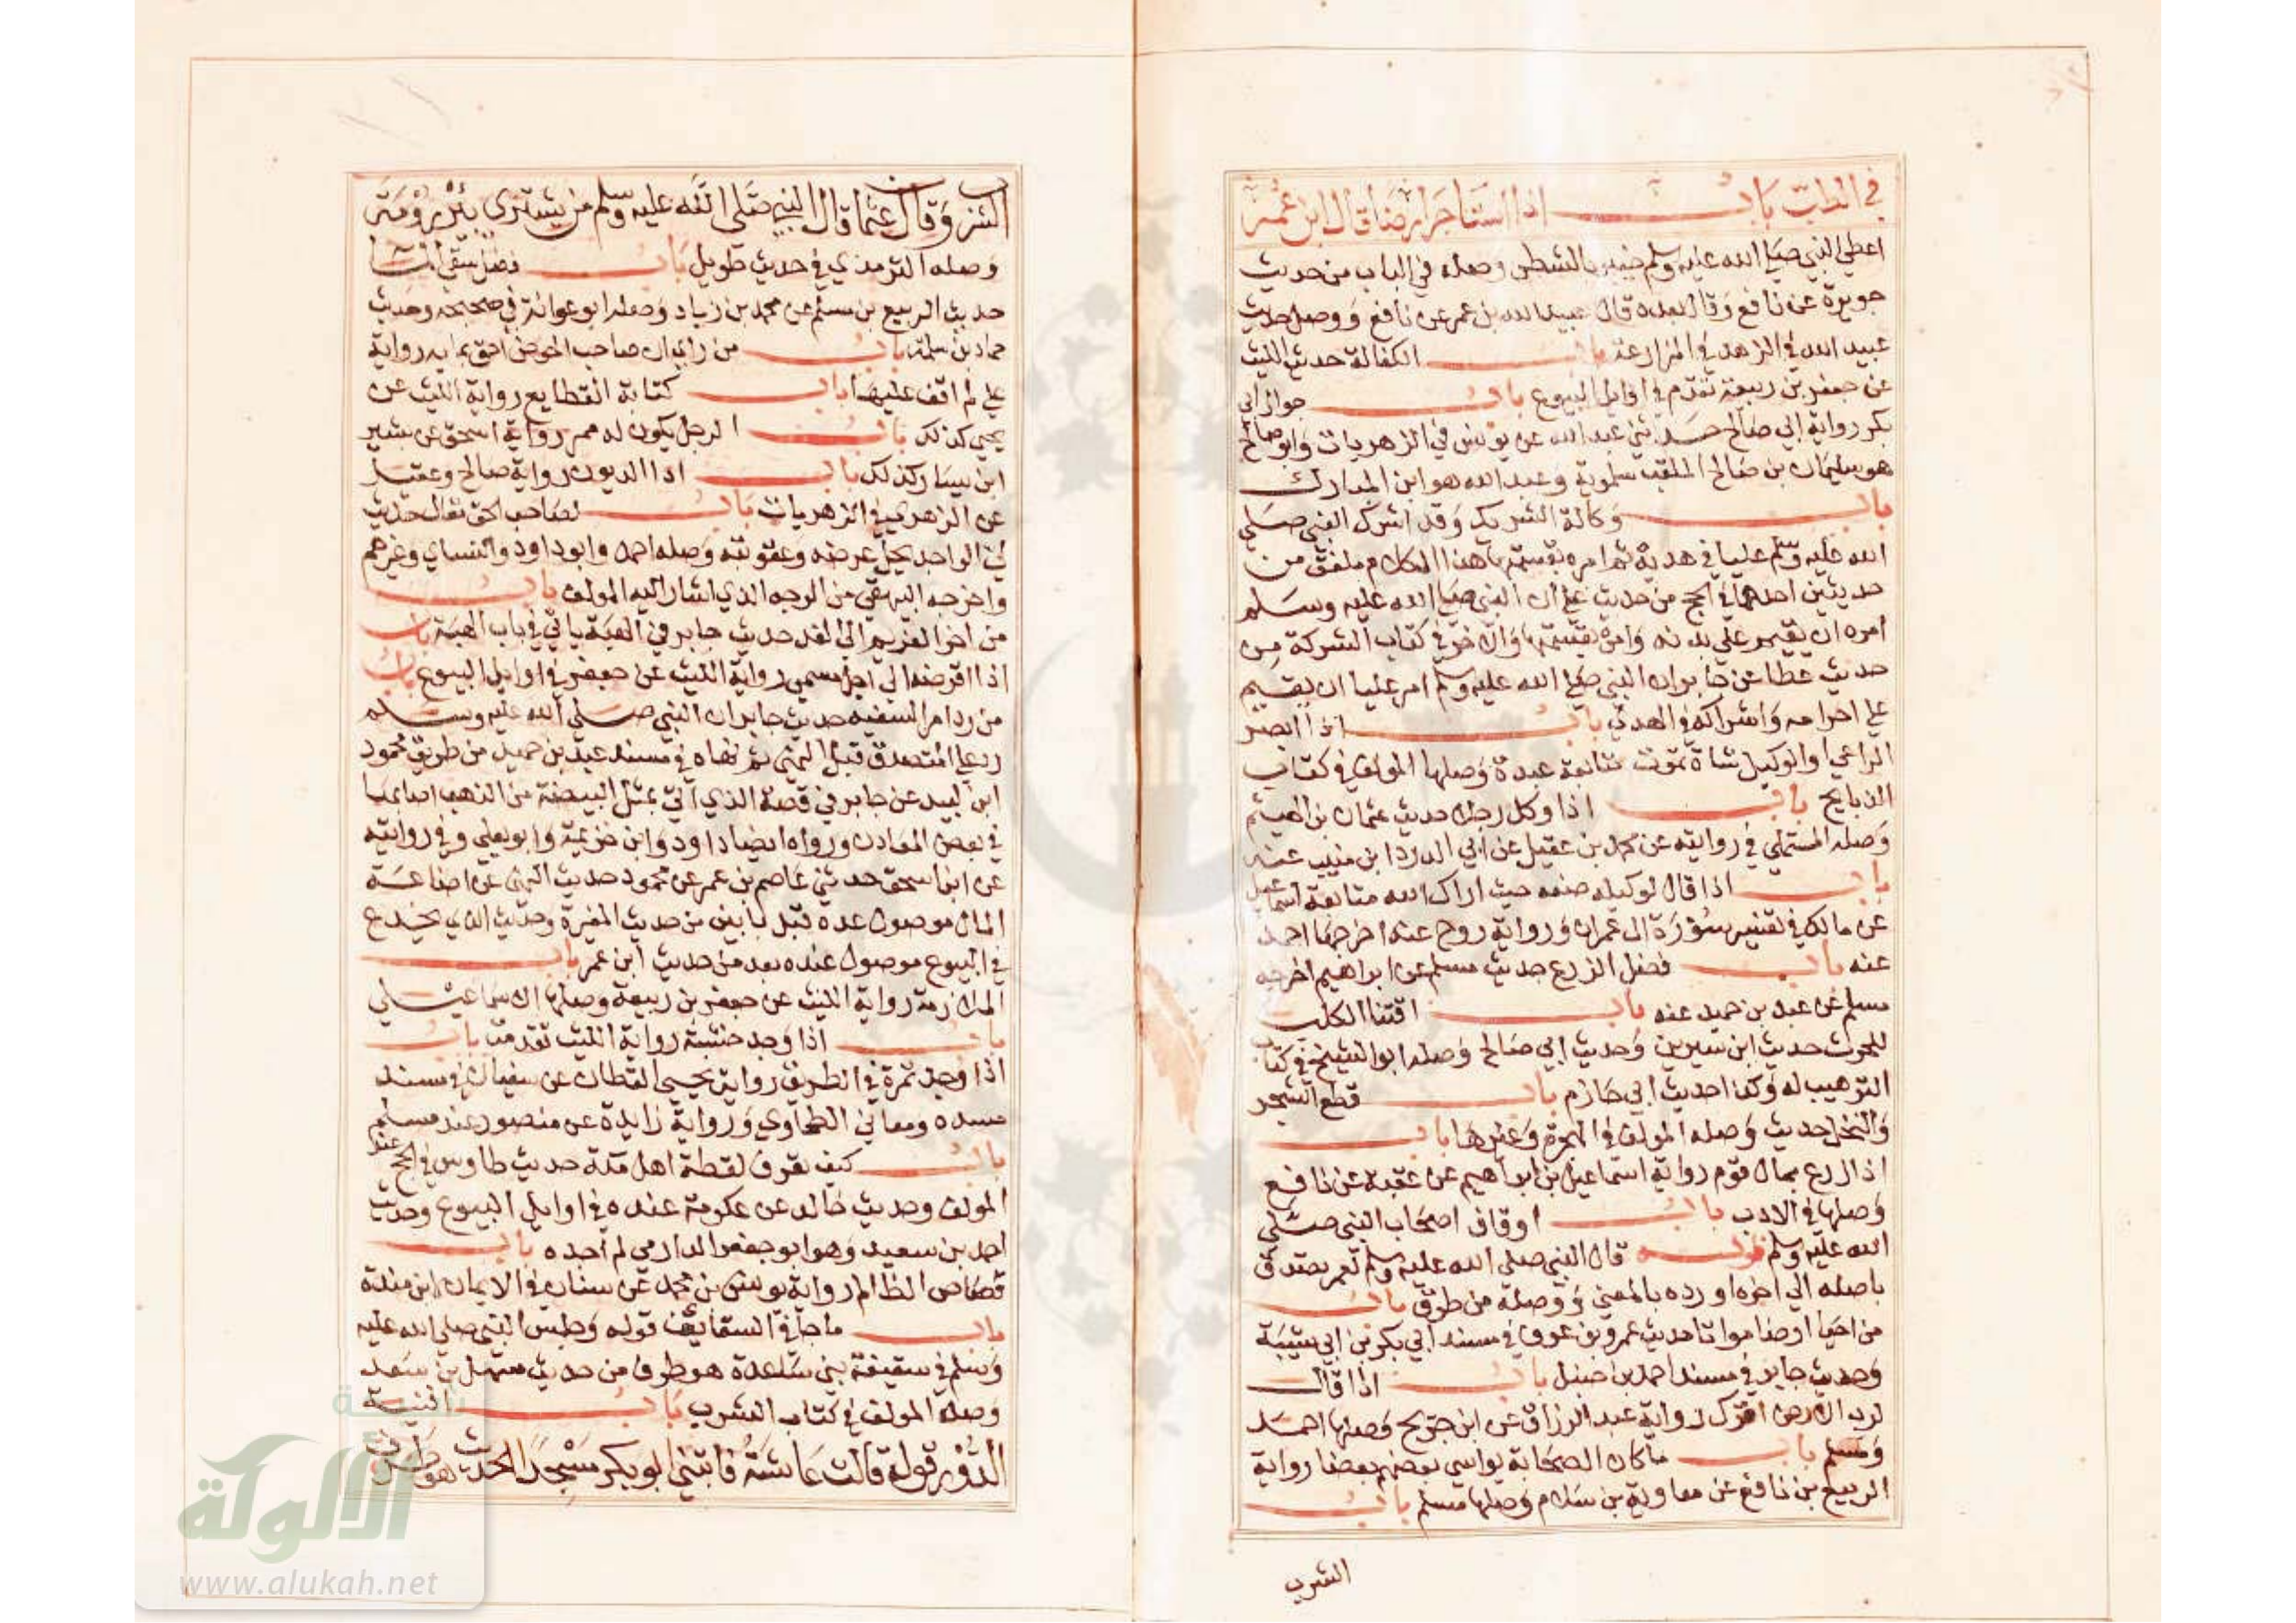 في الطب باب اذا استاجر ارضا قال ابن عمر
اعطى النبي صلى الله عليه وسلم خيبر بالشطر وصله في الباب من حديث
جويرة عن نافع وقال بعده قال عبيد الله بن عمر عن نافع ووصل حديث
عبيد الله في المزارعة باب الكفالة حديث الليث
عن جعفر بن ربيعة تقدم في اوايل البيوع باب جوار ابي
بكر رواية ابي صالح حدثني عبد الله عن يونس في الزهريات وابو صالح
هو سليمان بن صالح الملقب سلموية وعبد الله هو ابن المبارك
باب وكالة الشريك وقد اشرك النبي صلى
الله عليه وسلم عليا في هديه ثم امره بقسمتها هذا الكلام ملفق من
حديثين احدهما في الحج من حديث علي ان النبي صلى الله عليه وسلم
امره ان يقيم على بدنه وامره بقسمتها والاخر في كتاب الشركة من
حديث عطا عن جابر ان النبي صلى الله عليه وسلم امر عليا ان يقيم
على احرامه واشراكه في الهدي باب اذا ابصر
الراعي والوكيل شاة تموت متابعة عبدة وصلها المولف في كتاب
الذبايح باب اذا وكل رجلا حديث عثمان بن الهيثم
وصله المستملي في روايته عن محمد بن عقيل عن ابي الدردا ابن منيب عنه
باب اذا قال لوكيله ضعه حيث اراك الله متابعة اسماعيل
عن مالك في تفسير سورة ال عمران ورواية روح عنه اخرجها احمد
عنه باب فضل الزرع حديث مسلم عن ابراهيم اخرجه
مسلم عن عبد بن حميد عنه باب اقتنا الكلب
للحرث حديث ابن سيرين وحديث ابي صالح وصله ابو الشيخ في كتاب
الترهيب له وكذا حديث ابي حازم باب قطع الشجر
والنخل حديث وصله المولف في الهجرة وغيرها باب
اذا زرع بمال قوم رواية اسماعيل بن ابراهيم عن عقبة عن نافع
وصلها في الادب باب اوقاف اصحاب النبي صلى
الله عليه وسلم قوله قال النبي صلى الله عليه وسلم لعمر تصدق
باصله الى اخره اورده بالمعنى ووصله من طرق باب
من احيا ارضا مواتا حديث عمرو بن عوف في مسند ابي بكر بن ابي شيبة
وحديث جابر في مسند احمد بن حنبل باب اذا قال
لرب الارض اقرك رواية عبد الرزاق عن ابن جريج وصلها احمد
ومسلم باب ما كان الصحابة يواسي بعضهم بعضا رواية
الربيع بن نافع عن معاوية بن سلام وصلها مسلم باب
الشرب
الشرب وقال عثمان قال النبي صلى الله عليه وسلم من يشتري بئر رومة
وصله الترمذي في حديث طويل باب فضل سقي الما
حديث الربيع بن مسلم عن محمد بن زياد وصله ابو عوانة في صحيحه وحديث
حماد بن سلمة باب من راى ان صاحب الحوض احق بمايه رواية
علي لم اقف عليها باب كتابة القطايع رواية الليث عن
يحيى كذلك باب الرجل يكون له ممر رواية اسحق عن بشير
ابن يسار كذلك باب ادا الديون رواية صالح وعقيل
عن الزهري في الزهريات باب لصاحب الحق مقال حديث
لي الواجد يحل عرضه وعقوبته وصله احمد وابو داود والنساي وغيرهم
واخرجه البيهقي من الوجه الذي اشار اليه المولف باب
من اخر الغريم الى الغد حديث جابر في الهبة ياتي في باب الهبة باب
اذا اقرضه الى اجل مسمى رواية الليث عن جعفر في اوايل البيوع باب
من رد امر السفيه حديث جابر ان النبي صلى الله عليه وسلم
رد على المتصدق قبل النهي ثم نهاه في مسند عبد بن حميد من طريق محمود
ابن لبيد عن جابر في قصة الذي اتى بمثل البيضة من الذهب اصابها
في بعض المعادن ورواه ايضا داود وابن خزيمة وابو يعلى وفي روايته
عن ابن اسحق حدثني عاصم بن عمر عن محمود حديث النهي عن اضاعة
المال موصول عنده قبل بابين من حديث المغيرة وحديث الذي يخدع
في البيوع موصول عنده بعد من حديث ابن عمر باب
الملازمة رواية الليث عن جعفر بن ربيعة وصلها الاسماعيلي
باب اذا وجد خشبة رواية الليث تقدمت باب
اذا وجد تمرة في الطريق رواية يحيى القطان عن سفيان في مسند
مسدد ومعاني الطحاوي ورواية زايدة عن منصور عند مسلم
باب كيف تعرف لقطة اهل مكة حديث طاوس في الحج عند
المولف وحديث خالد عن عكرمة عنده في اوايل البيوع وحديث
احمد بن سعيد وهو ابو جعفر الدارمي لم اجده باب
قصاص الظالم رواية يونس بن محمد عن شيبان في الايمان لابن مندة
باب ما جا في السقايف قوله وجلس النبي صلى الله عليه
وسلم في سقيفة بني ساعدة هو طرف من حديث سهل بن سعد
وصله المولف في كتاب الشرب باب افنية
الدور قوله قالت عائشة فابتنى ابو بكر مسجدا الحديث هو طرف
الألوكة
www.alukah.net